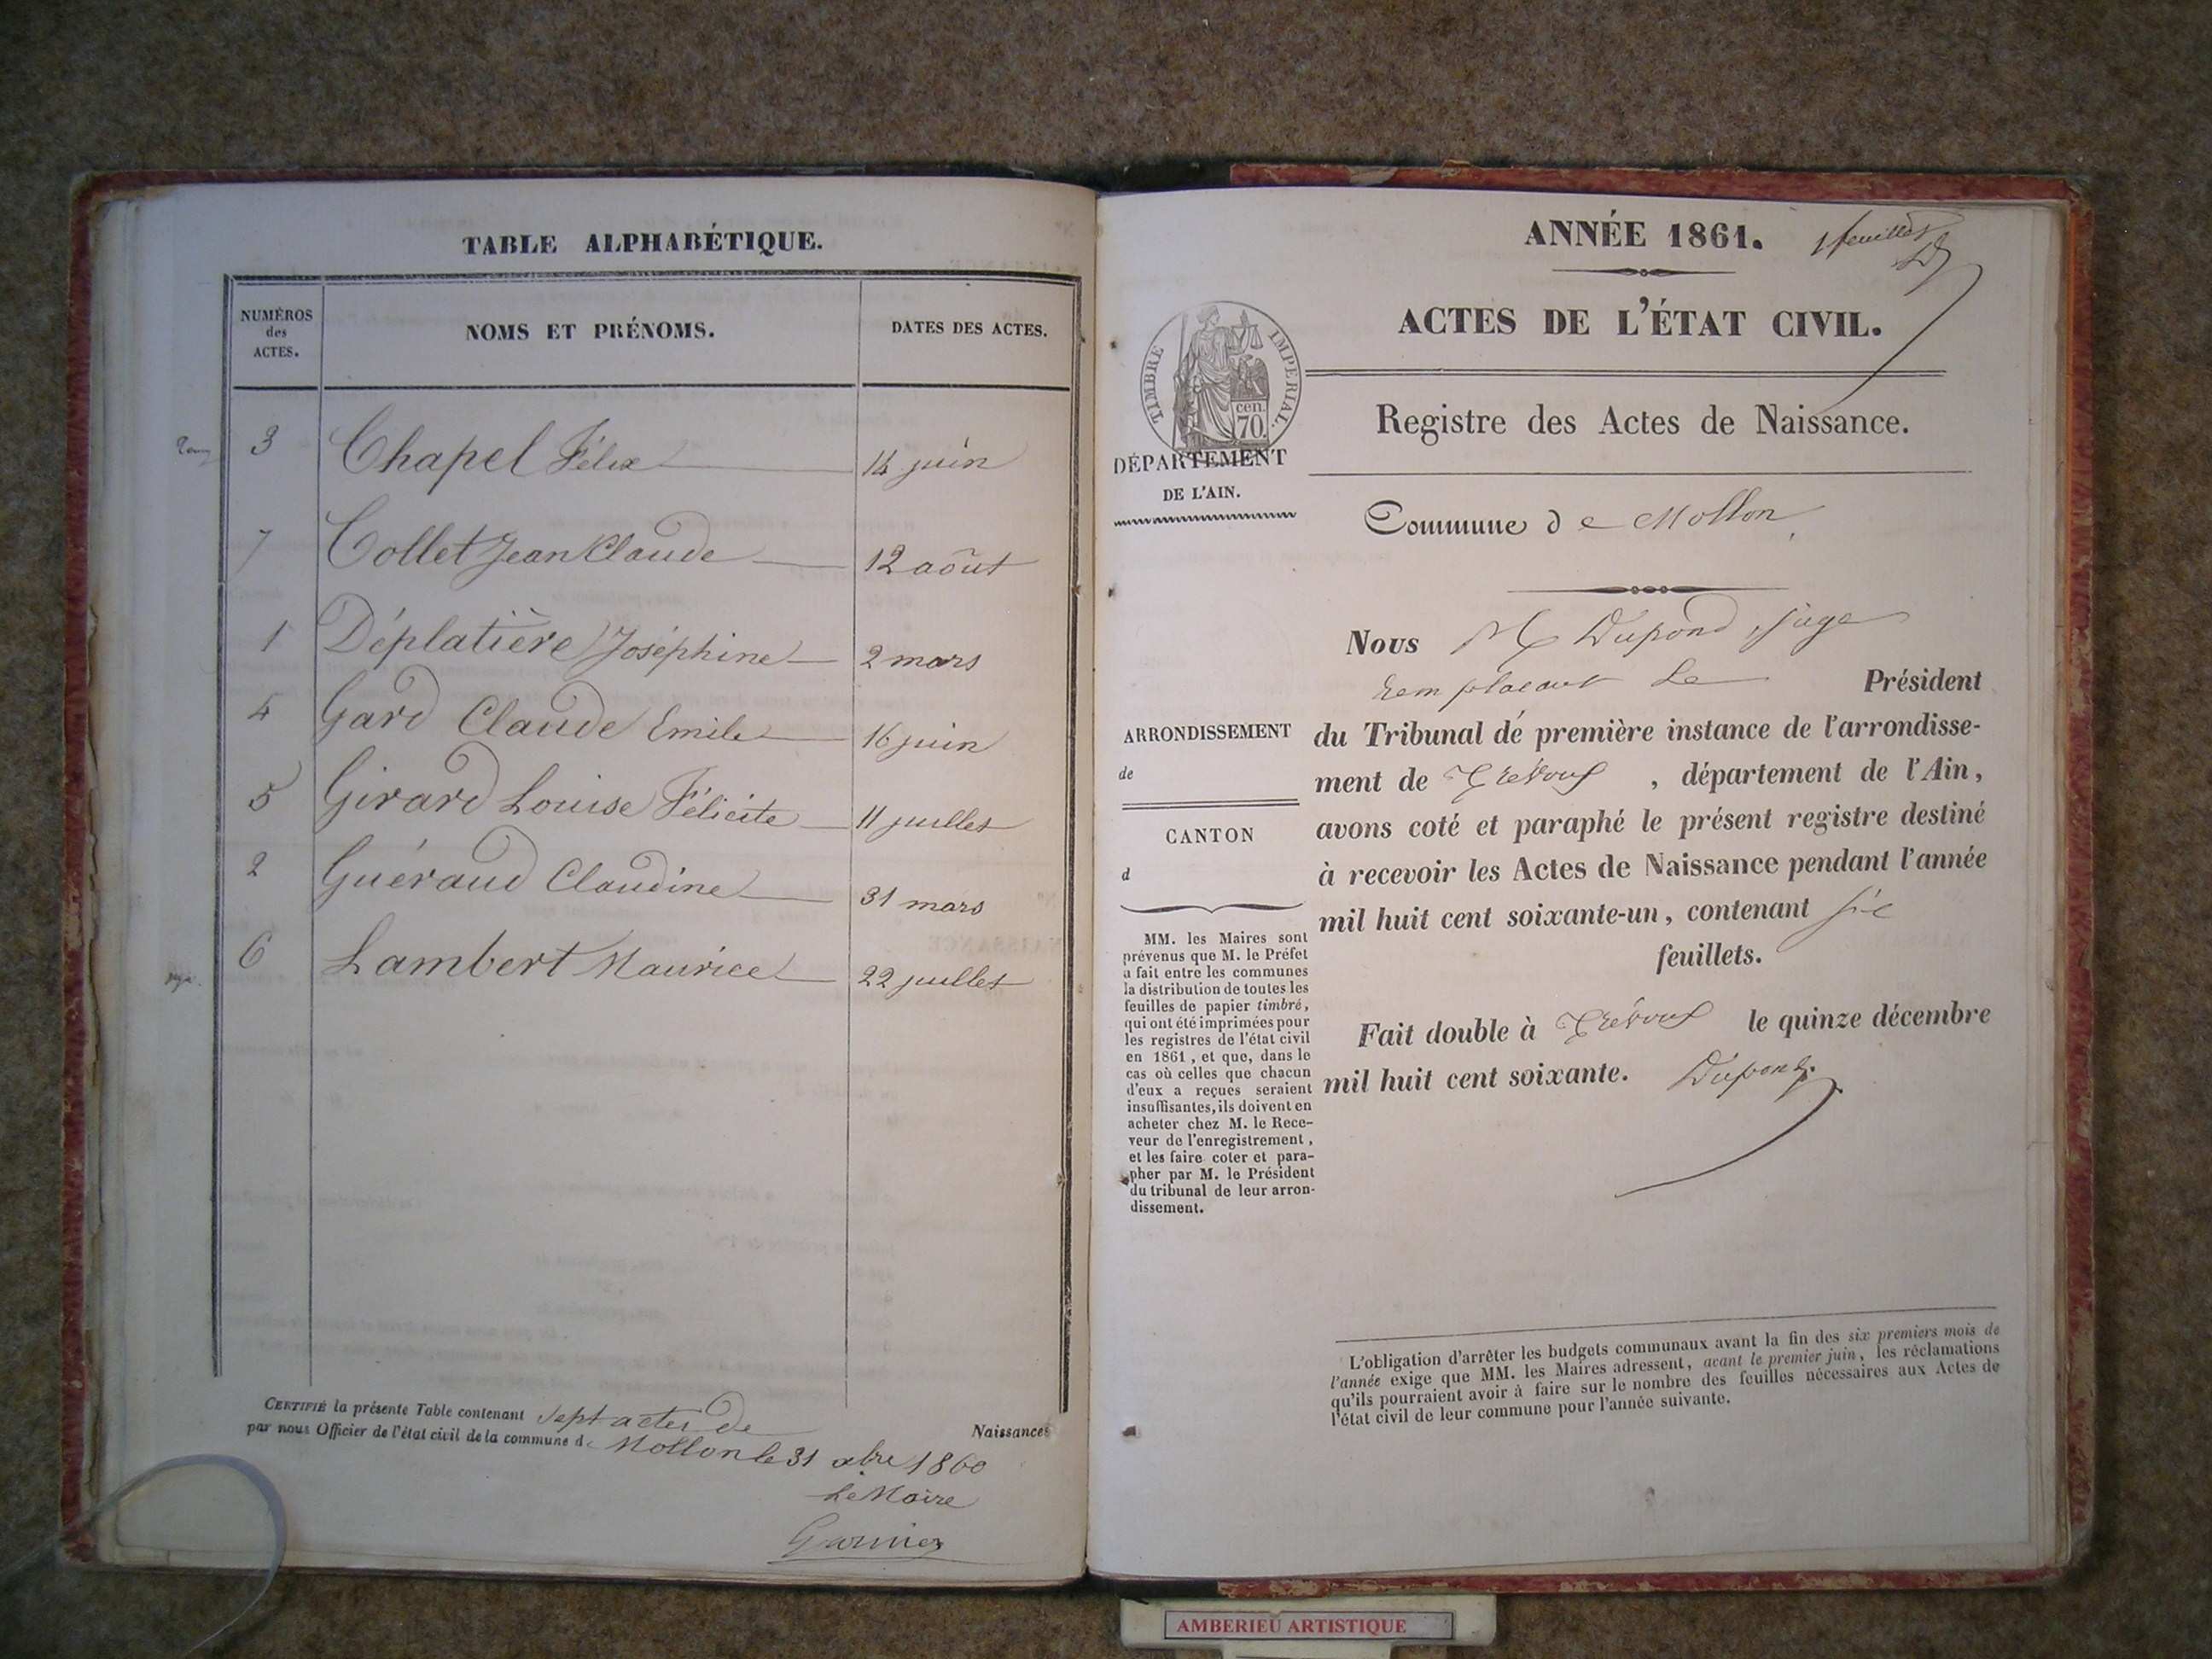 TABLE ALPHABÉTIQUE.
NUMÉROS des ACTES. NOMS ET PRÉNOMS. DATES DES ACTES.
3 Chapel Félix 14 juin
7 Collet Jean Claude 12 août
1 Déplatière Joséphine 2 mars
4 Gard Claude Emile 16 juin
5 Girard Louise Félicite 11 juillet
2 Guéraud Claudine 31 mars
6 Lambert Maurice 22 juillet
CERTIFIÉ la présente Table contenant sept actes de Naissances
par nous Officier de l'état civil de la commune de Mollon le 31 xbre 1860
Le Maire
Garnier
ANNÉE 1861.
1 feuillet
ACTES DE L'ÉTAT CIVIL.
TIMBRE IMPERIAL.
cen.
70.
Registre des Actes de Naissance.
DÉPARTEMENT
DE L'AIN.
Commune de Mollon
Nous M Dupond, juge
remplacant le Président
du Tribunal de première instance de l'arrondisse-
ment de Trévoux, département de l'Ain,
avons coté et paraphé le présent registre destiné
à recevoir les Actes de Naissance pendant l'année
mil huit cent soixante-un, contenant six
feuillets.
Fait double à Trévoux le quinze décembre
mil huit cent soixante. Dupond
ARRONDISSEMENT
de
CANTON
d
MM. les Maires sont
prévenus que M. le Préfet
a fait entre les communes
la distribution de toutes les
feuilles de papier timbré,
qui ont été imprimées pour
les registres de l'état civil
en 1861, et que, dans le
cas où celles que chacun
d'eux a reçues seraient
insuffisantes, ils doivent en
acheter chez M. le Rece-
veur de l'enregistrement,
et les faire coter et para-
pher par M. le Président
du tribunal de leur arron-
dissement.
L'obligation d'arrêter les budgets communaux avant la fin des six premiers mois de
l'année exige que MM. les Maires adressent, avant le premier juin, les réclamations
qu'ils pourraient avoir à faire sur le nombre des feuilles nécessaires aux Actes de
l'état civil de leur commune pour l'année suivante.
AMBERIEU ARTISTIQUE